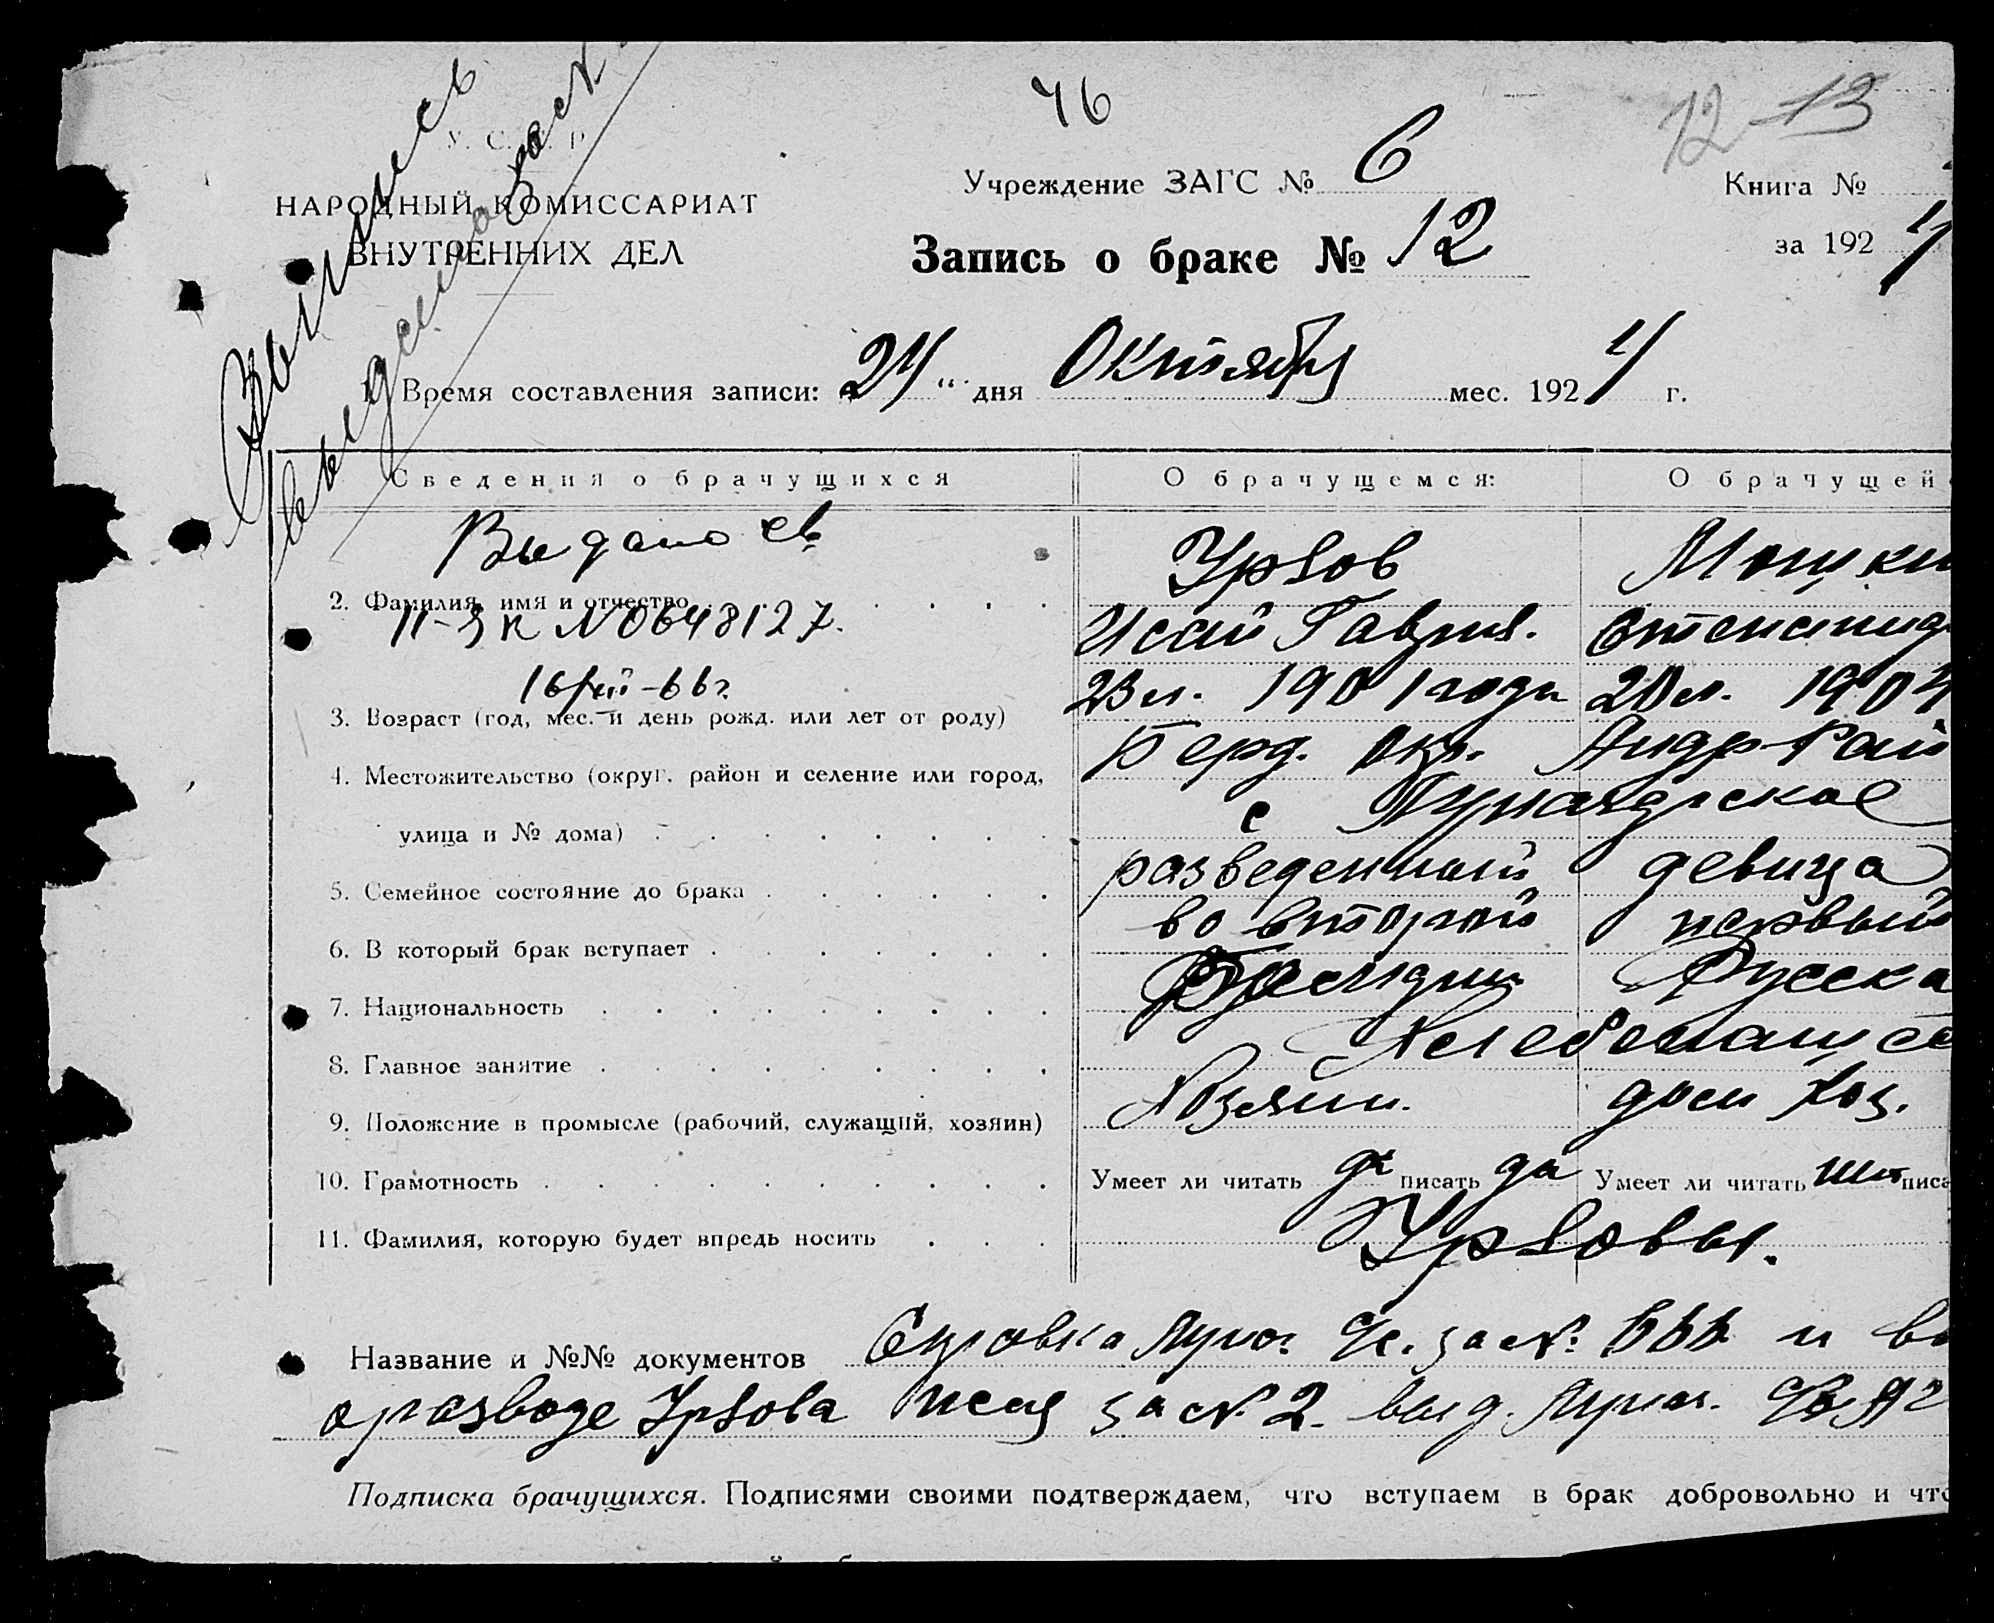 Выпись
выдена
У. С. С. Р.
46
12 13
НАРОДНЫЙ КОМИССАРИАТ
ВНУТРЕННИХ ДЕЛ
Учреждение ЗАГС № 6
Книга №
Запись о браке № 12
за 192 4
1. Время составления записи: 24 " дня Октября мес. 192 4 г.
Сведения о брачущихся
О брачущемся:
О брачущей
Выдано св.
II-ЯК №0648127.
16/ -66г.
2. Фамилия, имя и отчество
Урзов
Исай Гаврил.
3. Возраст (год, мес. и день рожд. или лет от роду)
23 л. 1901 года
20 л. 1904
4. Местожительство (округ, район и селение или город,
улица и № дома)
Берд. Окр. Андр. Рай
с
5. Семейное состояние до брака
разведенный
девица
6. В который брак вступает
во второй
первый
7. Национальность
Русска
8. Главное занятие
Хлебопашес
9. Положение в промысле (рабочий, служащий, хозяин)
Хозяин.
дом хоз.
10. Грамотность
Умеет ли читать да писать да
Умеет ли читать нет писа
11. Фамилия, которую будет впредь носить
Урзовы.
Название и №№ документов Справка за №. и вы
о разводе Урзова Исая за №. 2. выд.
Подписка брачущихся. Подписями своими подтверждаем, что вступаем в брак добровольно и что